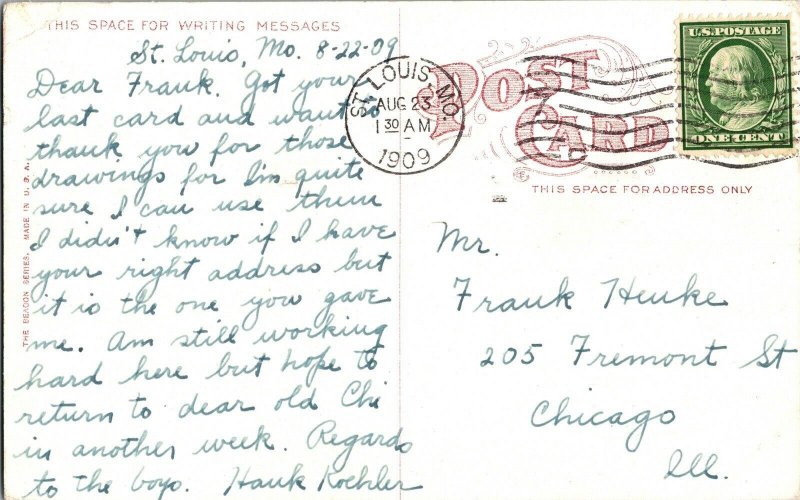 THIS SPACE FOR WRITING MESSAGES
St. Louis, Mo. 8-22-09
Dear Frank. Got your
last card and want to
thank you for those
drawings for I'm quite
sure I can use them
I didn't know if I have
your right address but
it is the one you gave
me. Am still working
hard here but hope to
return to dear old Chi
in another week. Regards
to the boys. Hank Koehler
THE BEACON SERIES. MADE IN U.S.A.
POST CARD
ST. LOUIS, MO.
AUG 23
1 30 AM
1909
U.S. POSTAGE
ONE CENT
THIS SPACE FOR ADDRESS ONLY
Mr.
Frank Henke
205 Fremont St
Chicago
Ill.